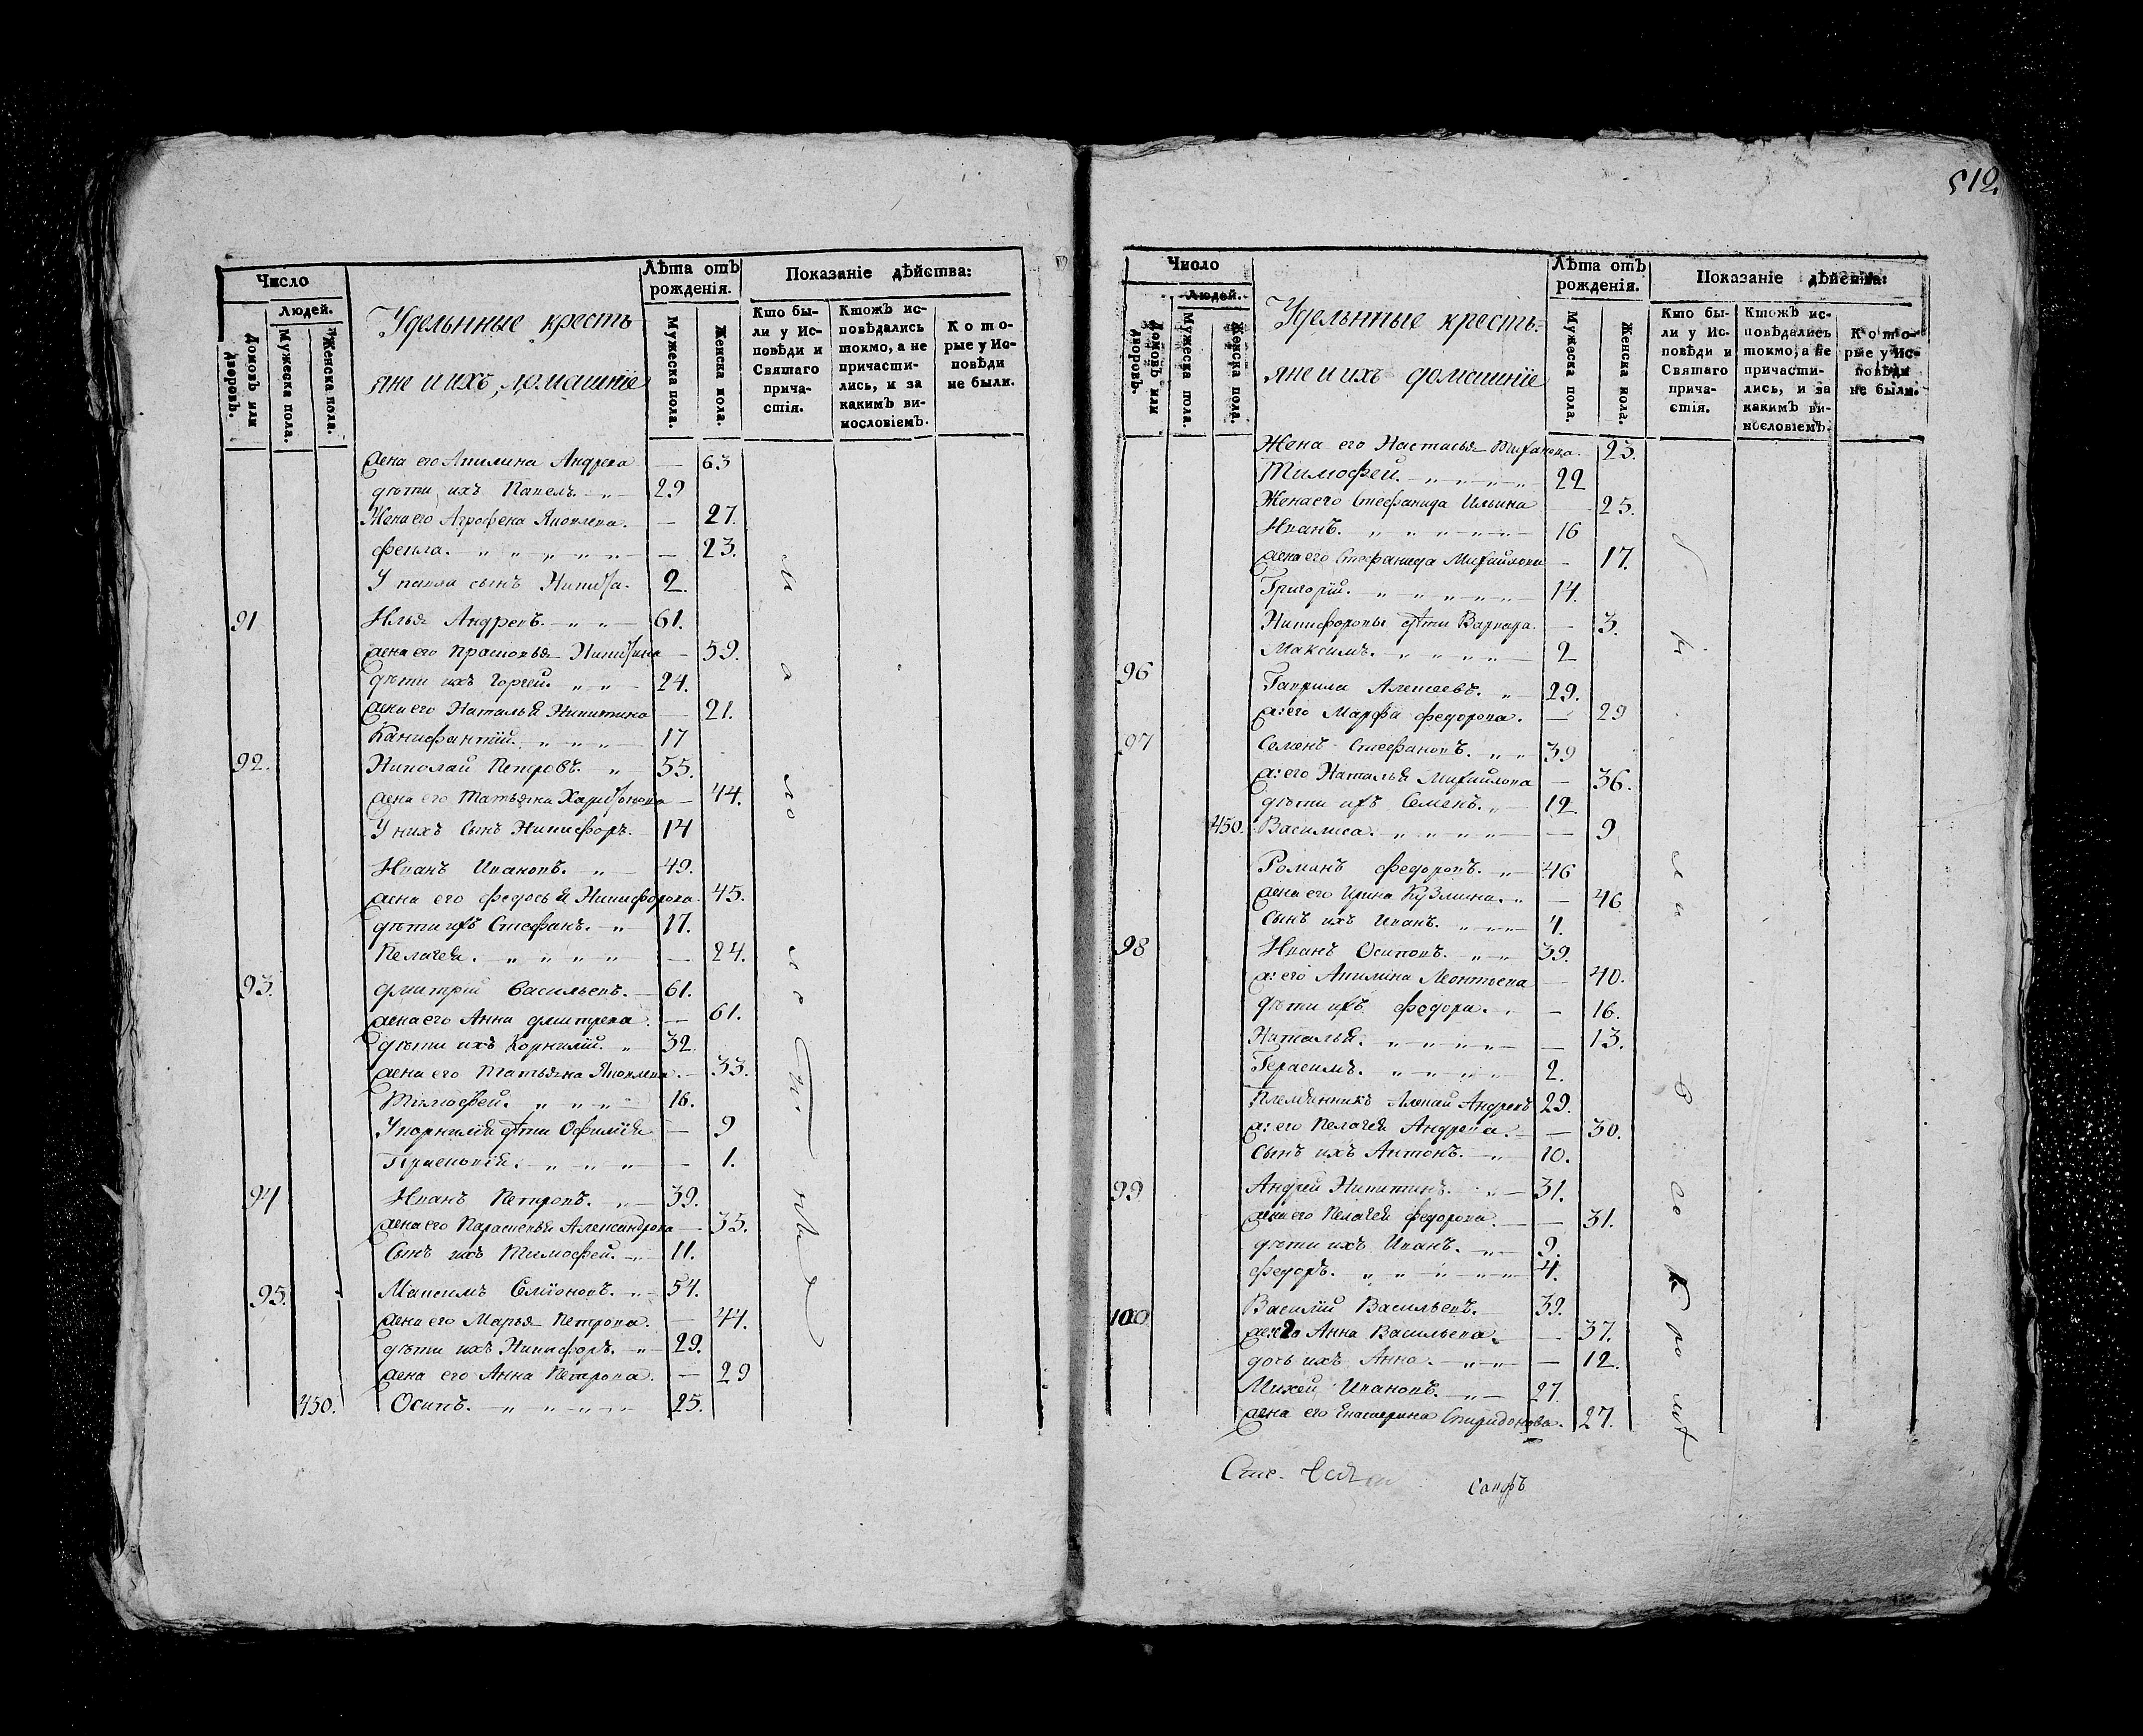 Число
Людей.
Домовъ или дворовъ.
Мужеска пола.
Женска пола.
Удельнные кресть
яне и ихъ домашніе
Лѣта отъ рожденія.
Мужеска пола.
Женска пола.
Показаніе дѣйства:
Кто бы-
ли у Ис-
повѣди и
Святаго
прича-
стія.
Ктожъ ис-
повѣдались
токмо, а не
причасти-
лись, и за
какимъ ви-
нословіемъ.
Кото-
рые у Ис-
повѣди
не были.
жена его Акилина Андреева — 63
дѣти ихъ Павелъ. „ — 29
Жена его Агрофена Яковлева. — 27.
Фекла. „ „ „ „ „ — 23.
У павла сынъ Никита. 2.
91 Илья Андреевъ. „ „ 61.
жена его Прасковья Никитина — 59.
дѣти ихъ Горгей. „ „ 24.
жена его Наталья Никитина — 21.
Канифантій. „ „ „ 17
92. Николай Петровъ. „ 55.
жена его Татьяна Харитонова — 44.
У нихъ сынъ Никифоръ. 14
Иванъ Ивановъ. „ 49.
жена его Федосья Никифорова. 45.
дѣти ихъ Стефанъ. „ 17.
Пелагея. „ „ „ „ — 24.
93. Дмитрій Васильевъ. — 61.
жена его Анна Дмитрева. — 61.
дѣти ихъ Корнилій. „ 32
жена его Татьяна Яковлева. — 33.
Тимофей. „ „ „ 16.
У корнилія дѣти Офимія — 9
Прасковія. „ „ „ — 1.
94 Иванъ Петровъ. „ 39.
жена его Парасковья Александрова — 35.
Сынъ ихъ Тимофей. „ 11.
95. Максимъ Семіоновъ. „ 54.
жена его Марья Петрова. — 44.
дѣти ихъ Никифоръ. „ 29.
жена его Анна Петрова. — 29
450. Осипъ. „ „ „ „ 25.
512.
Число
Людей.
Домовъ или дворовъ.
Мужеска пола.
Женска пола.
Удельнные кресть=
яне и ихъ домашніе
Лѣта отъ рожденія.
Мужеска пола.
Женска пола.
Показаніе дѣйства:
Кто бы-
ли у Ис-
повѣди и
Святаго
прича-
стія.
Ктожъ ис-
повѣдались
токмо, а не
причасти-
лись, и за
какимъ ви-
нословіемъ.
Кото-
рые у Ис-
повѣди
не были.
Жена его Настасья 23.
Тимофей. „ „ „ „ „ 22
Жена его Стефанида Ильина — 25.
Иванъ. „ „ „ „ „ „ 16
жена его Стефанида Михайлова — 17.
Григорій. „ „ „ „ „ 14.
Никифоровы дѣти Варвара. — 3.
Максимъ. „ „ „ „ 2
96 Гаврила Алексеевъ. „ 29.
ж: его Марфа Федорова. — 29
97 Семенъ Стефановъ. „ „ 39
ж: его Наталья Михайлова — 36.
дѣти ихъ Семенъ. „ 12
450. Василиса. „ „ „ „ — 9
Романъ Федоровъ. „ 46
жена его Ирина Кузмина. „ — 46
Сынъ ихъ Иванъ. „ „ „ 4.
98 Иванъ Осиповъ. „ „ 39.
ж: его Акилина Леонтьева — 40.
дѣти ихъ Федора. „ — 16.
Наталья. „ „ „ „ „ — 13.
Герасимъ. „ „ „ „ 2.
Племянникъ Андреевъ 29.
ж: его Пелагея Андреева. — 30.
Сынъ ихъ Антонъ. „ 10.
99 Андрей Никитинъ. „ — 31.
жена его Пелагея Федорова. — 31.
дѣти ихъ Иванъ. „ „ 9.
Федоръ. „ „ „ „ „ 4.
100 Василій Васильевъ. 39.
Анна Васильева. — 37.
дочь ихъ Анна. „ „ — 12.
Михей Ивановъ. „ — 27
жена его Екатерина Спиридонова. 27.